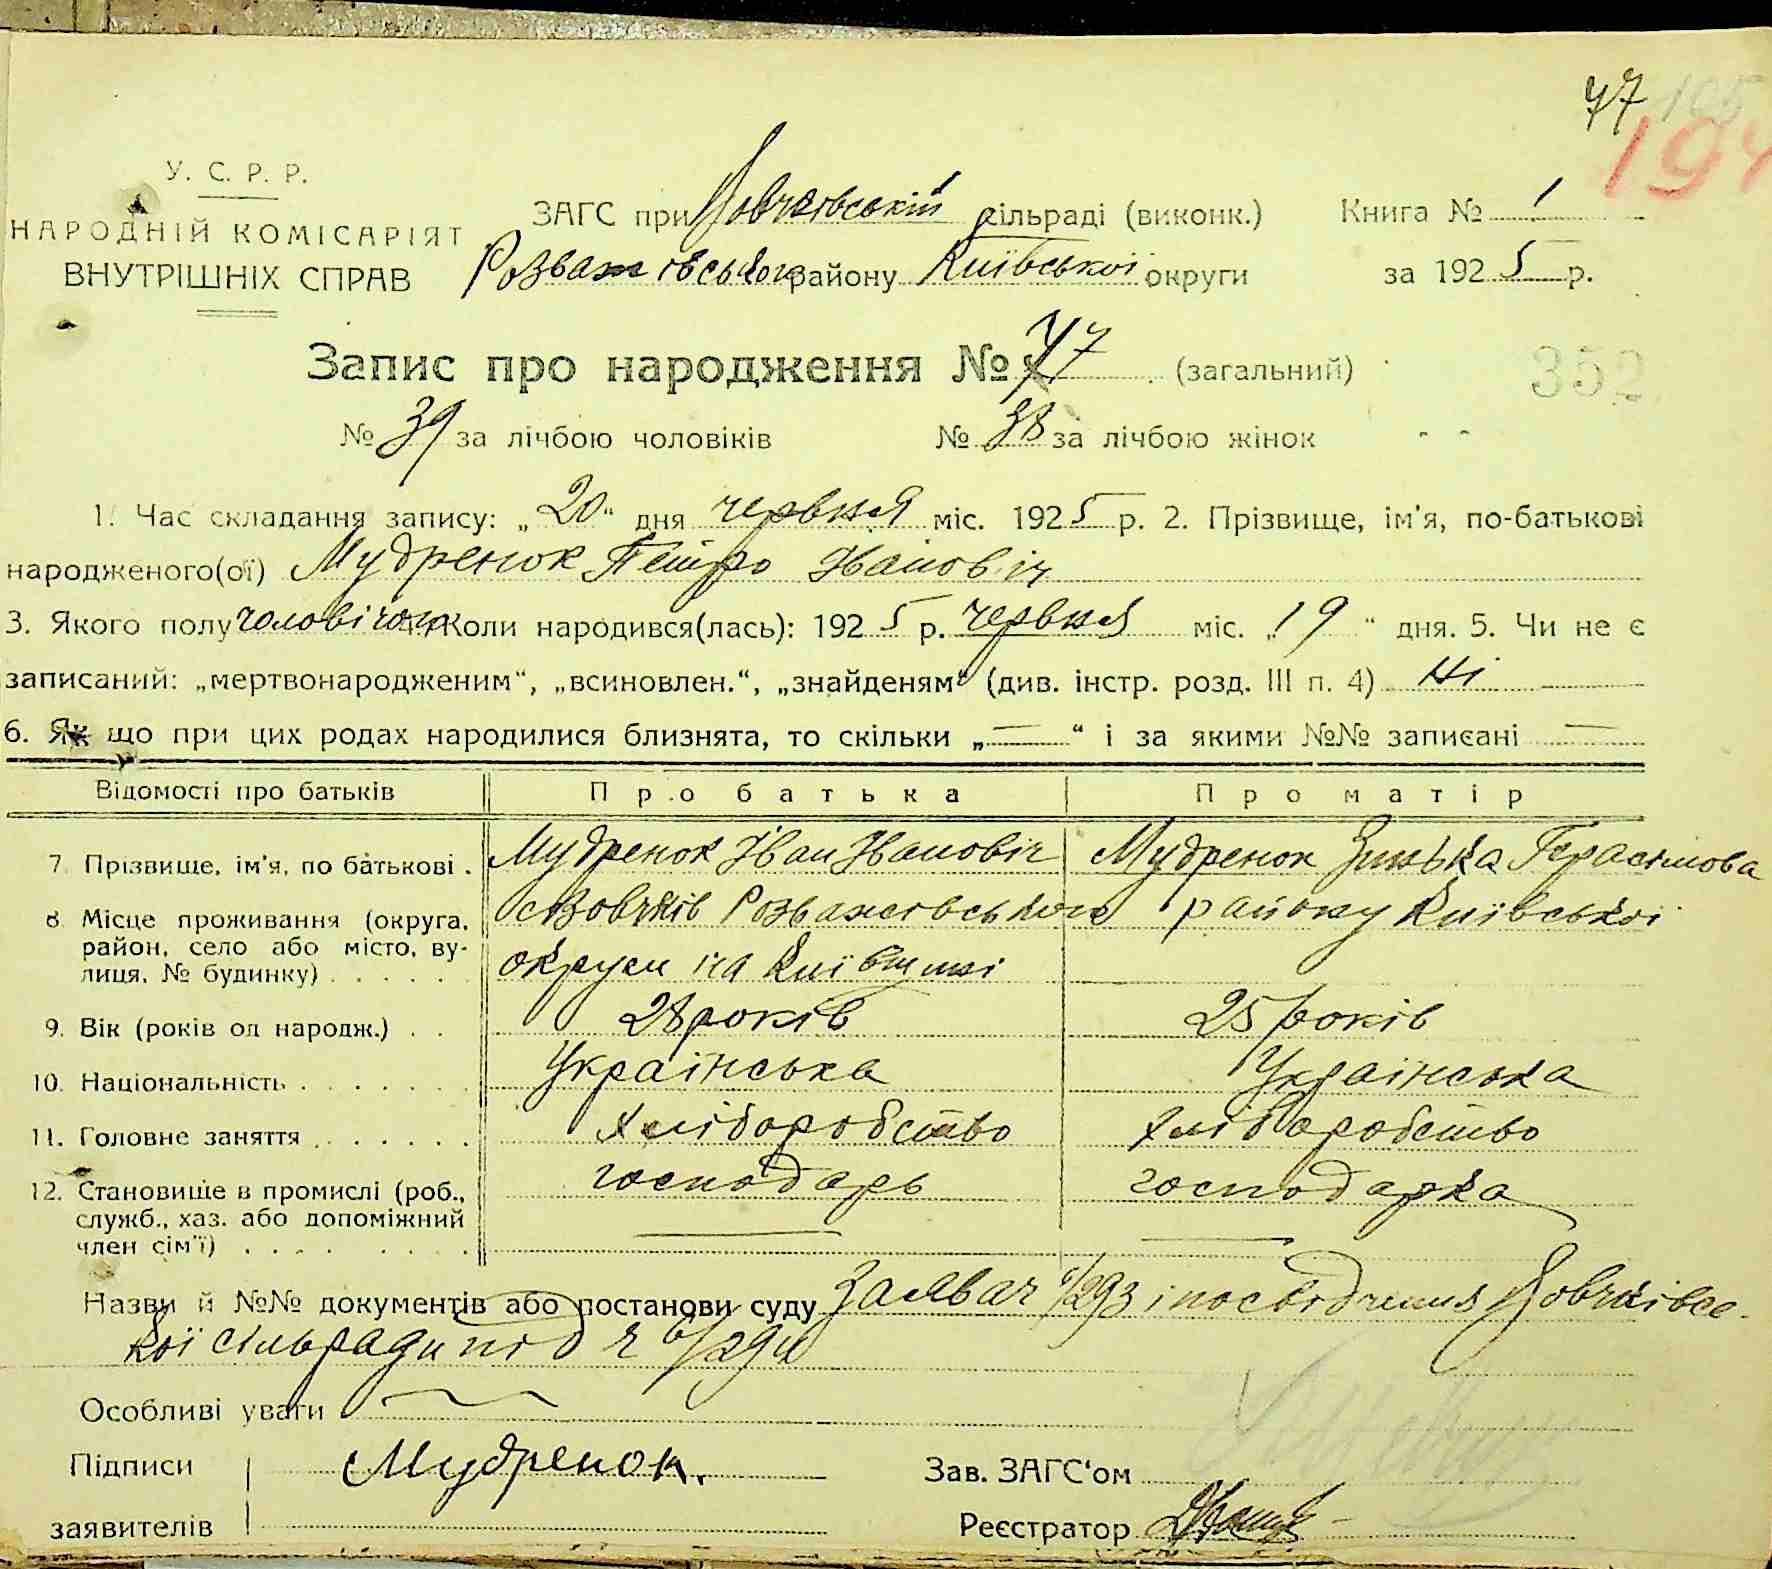 77 195
194
У. С. Р. Р.
НАРОДНІЙ КОМІСАРІЯТ
ВНУТРІШНІХ СПРАВ
ЗАГС при Вовчківській сільраді (виконк.)
Розважівського району Київської округи
Книга № 1
за 1925 р.
Запис про народження № 77 (загальний)
352
№ 39 за лічбою чоловіків № 38 за лічбою жінок
1. Час складання запису: „20“ дня червня міс. 1925 р. 2. Прізвище, ім'я, по-батькові
народженого(ої) Мудренок Петро Іванович
3. Якого полу чоловічого Коли народився(лась): 1925 р. червня міс. „19“ дня. 5. Чи не є
записаний: „мертвонародженим“, „всиновлен.“, „знайденям“ (див. інстр. розд. III п. 4) Ні
6. Як що при цих родах народилися близнята, то скільки „—“ і за якими №№ записані —
Відомості про батьків Про батька Про матір
7. Прізвище, ім'я, по батькові . Мудренок Іван Іванович Мудренок Зинька Герасимова
8. Місце проживання (округа, район, село або місто, вулиця, № будинку) с Вовчків Розважівського району Київської
округи на Київщині
9. Вік (років од народж.) . . 28 років 25 років
10. Національність . . . . . . . Українська Українська
11. Головне заняття . . . . . . . Хліборобство Хліборобство
12. Становище в промислі (роб., служб., хаз. або допоміжний член сім'ї) . . . господарь господарка
Назви й №№ документів або постанови суду Заява ч 6/293 і посвідчення Вовчківсь-
кої сільради під ч
Особливі уваги
Підписи Мудренок.
заявителів
Зав. ЗАГС'ом
Реєстратор